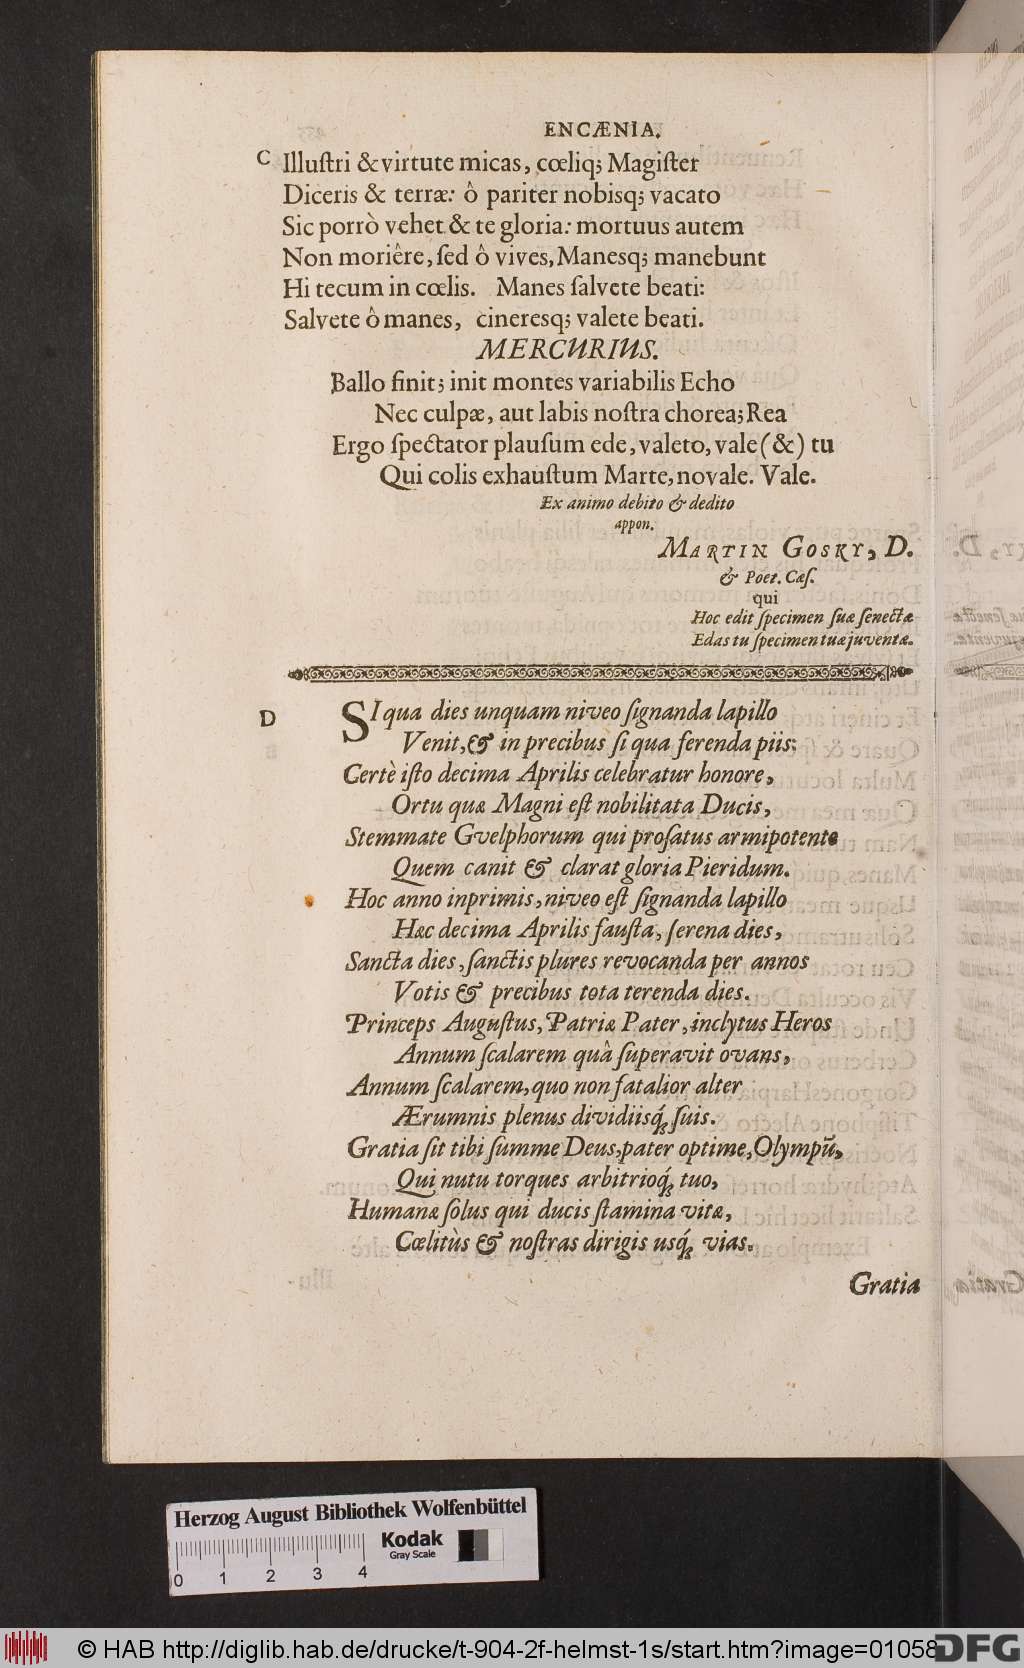 ENCÆNIA.
C Illuſtri & virtute micas, cœliq; Magiſter
Diceris & terræ: ô pariter nobisq; vacato
Sic porrò vehet & te gloria: mortuus autem
Non moriêre, ſed ô vives, Manesq; manebunt
Hi tecum in cœlis. Manes ſalvete beati:
Salvete ô manes, cineresq; valete beati.
MERCURIUS.
Ballo finit; init montes variabilis Echo
Nec culpæ, aut labis noſtra chorea; Rea
Ergo ſpectator plauſum ede, valeto, vale (&) tu
Qui colis exhauſtum Marte, novale. Vale.
Ex animo debito & dedito
appon.
MARTIN GOSKY, D.
& Poet. Cæſ.
qui
Hoc edit ſpecimen ſuæ ſenectæ
Edas tu ſpecimen tuæ juventæ.
D SI qua dies unquam niveo ſignanda lapillo
Venit, & in precibus ſi qua ferenda piis:
Certè iſto decima Aprilis celebratur honore,
Ortu quæ Magni eſt nobilitata Ducis,
Stemmate Gvelphorum qui proſatus armipotente
Quem canit & clarat gloria Pieridum.
Hoc anno inprimis, niveo eſt ſignanda lapillo
Hæc decima Aprilis fauſta, ſerena dies,
Sancta dies, ſanctis plures revocanda per annos
Votis & precibus tota terenda dies.
Princeps Auguſtus, Patriæ Pater, inclytus Heros
Annum ſcalarem quâ ſuperavit ovans,
Annum ſcalarem, quo non fatalior alter
Ærumnis plenus dividiisq́; ſuis.
Gratia ſit tibi ſumme Deus, pater optime, Olympū,
Qui nutu torques arbitrioq́; tuo,
Humanæ ſolus qui ducis ſtamina vitæ,
Cœlitùs & noſtras dirigis usq́; vias.
Gratia
Herzog August Bibliothek Wolfenbüttel
Kodak
Gray Scale
0 1 2 3 4
© HAB http://diglib.hab.de/drucke/t-904-2f-helmst-1s/start.htm?image=01058
DFG